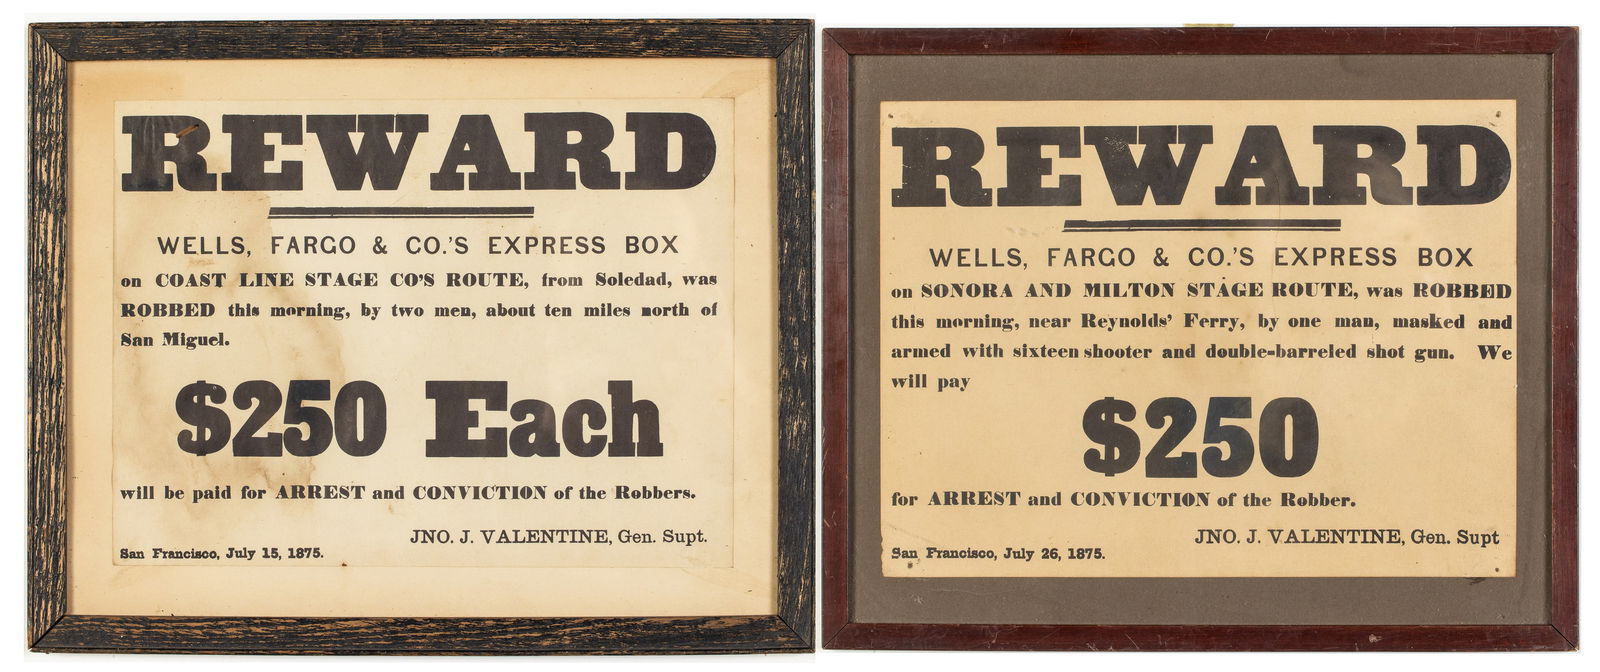 REWARD
WELLS, FARGO & CO.'S EXPRESS BOX
on COAST LINE STAGE CO'S ROUTE, from Soledad, was
ROBBED this morning, by two men, about ten miles north of
San Miguel.
$250 Each
will be paid for ARREST and CONVICTION of the Robbers.
JNO. J. VALENTINE, Gen. Supt.
San Francisco, July 15, 1875.
REWARD
WELLS, FARGO & CO.'S EXPRESS BOX
on SONORA AND MILTON STAGE ROUTE, was ROBBED
this morning, near Reynolds' Ferry, by one man, masked and
armed with sixteen shooter and double-barreled shot gun. We
will pay
$250
for ARREST and CONVICTION of the Robber.
JNO. J. VALENTINE, Gen. Supt
San Francisco, July 26, 1875.